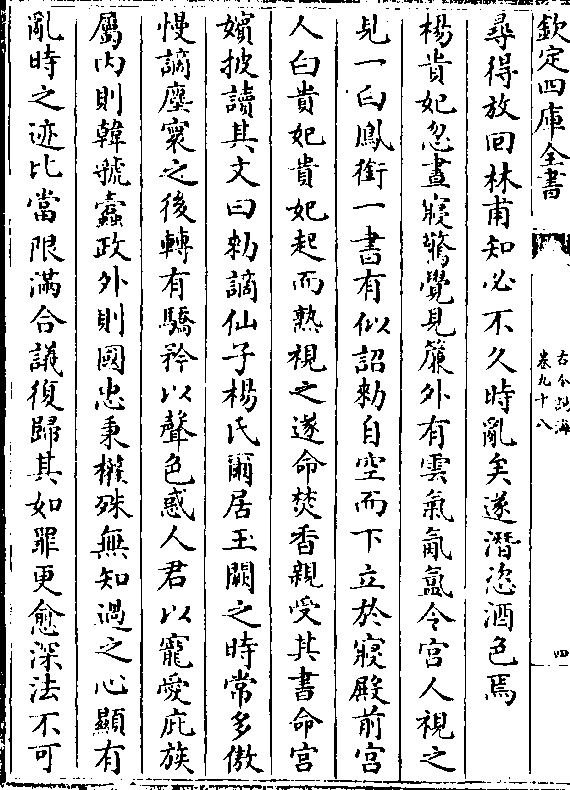 欽定四庫全書
古今説海
卷九十八
四
尋得放回林甫知必不久時亂矣遂潛恣酒色焉
楊貴妃忽晝寢驚覺見簾外有雲氣氤氳令宫人視之
見一白鳳銜一書有似詔勑自空而下立於寢殿前宫
人白貴妃貴妃起而熟視之遂命焚香親受其書命宫
嬪披讀其文曰勑謫仙子楊氏爾居玉闕之時常多傲
慢謫塵寰之後轉有驕矜以聲色惑人君以寵愛庇族
屬内則韓虢蠹政外則國忠秉權殊無知過之心顯有
亂時之迹比當限滿合議復歸其如罪更愈深法不可